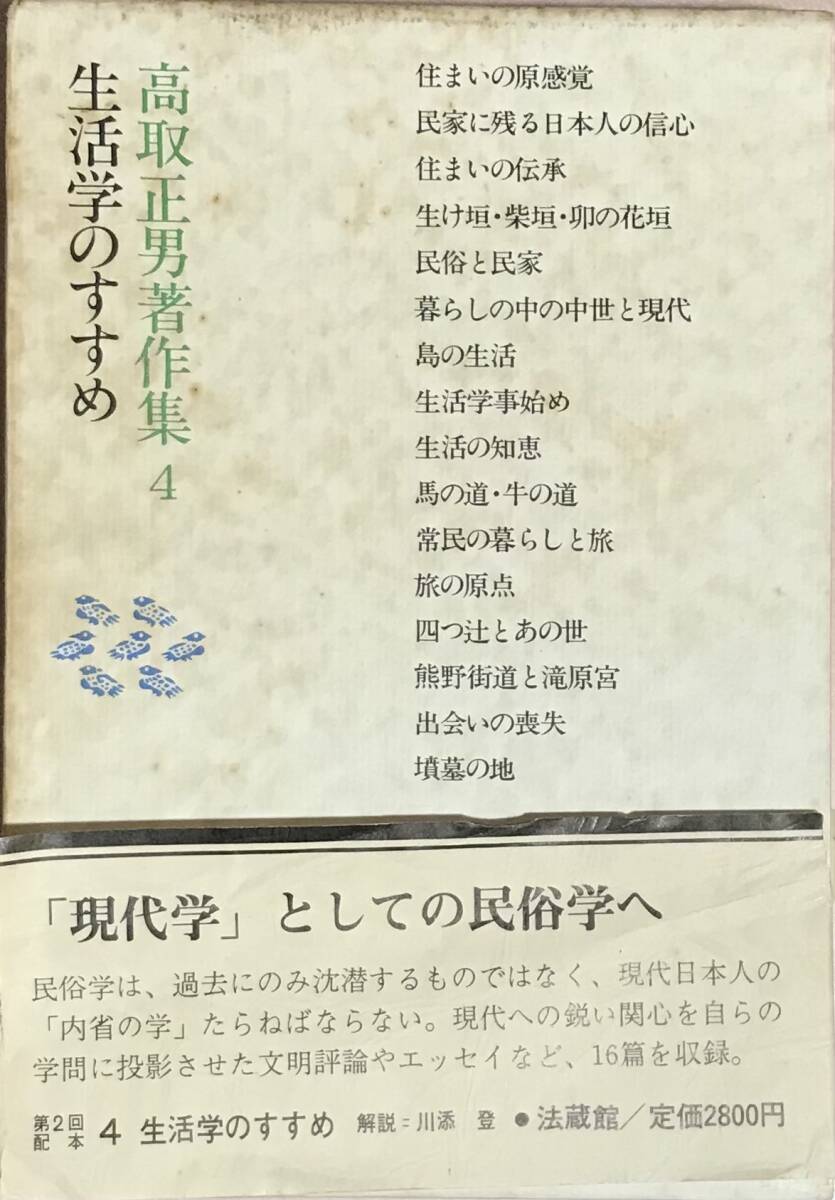 高取正男著作集4
生活学のすすめ
住まいの原感覚
民家に残る日本人の信心
住まいの伝承
生け垣・柴垣・卯の花垣
民俗と民家
暮らしの中の中世と現代
島の生活
生活学事始め
生活の知恵
馬の道・牛の道
常民の暮らしと旅
旅の原点
四つ辻とあの世
熊野街道と滝原宮
出会いの喪失
墳墓の地
「現代学」としての民俗学へ
民俗学は、過去にのみ沈潜するものではなく、現代日本人の
「内省の学」たらねばならない。現代への鋭い関心を自らの
学問に投影させた文明評論やエッセイなど、16篇を収録。
第2回配本 4 生活学のすすめ 解説=川添 登 ●法蔵館/定価2800円